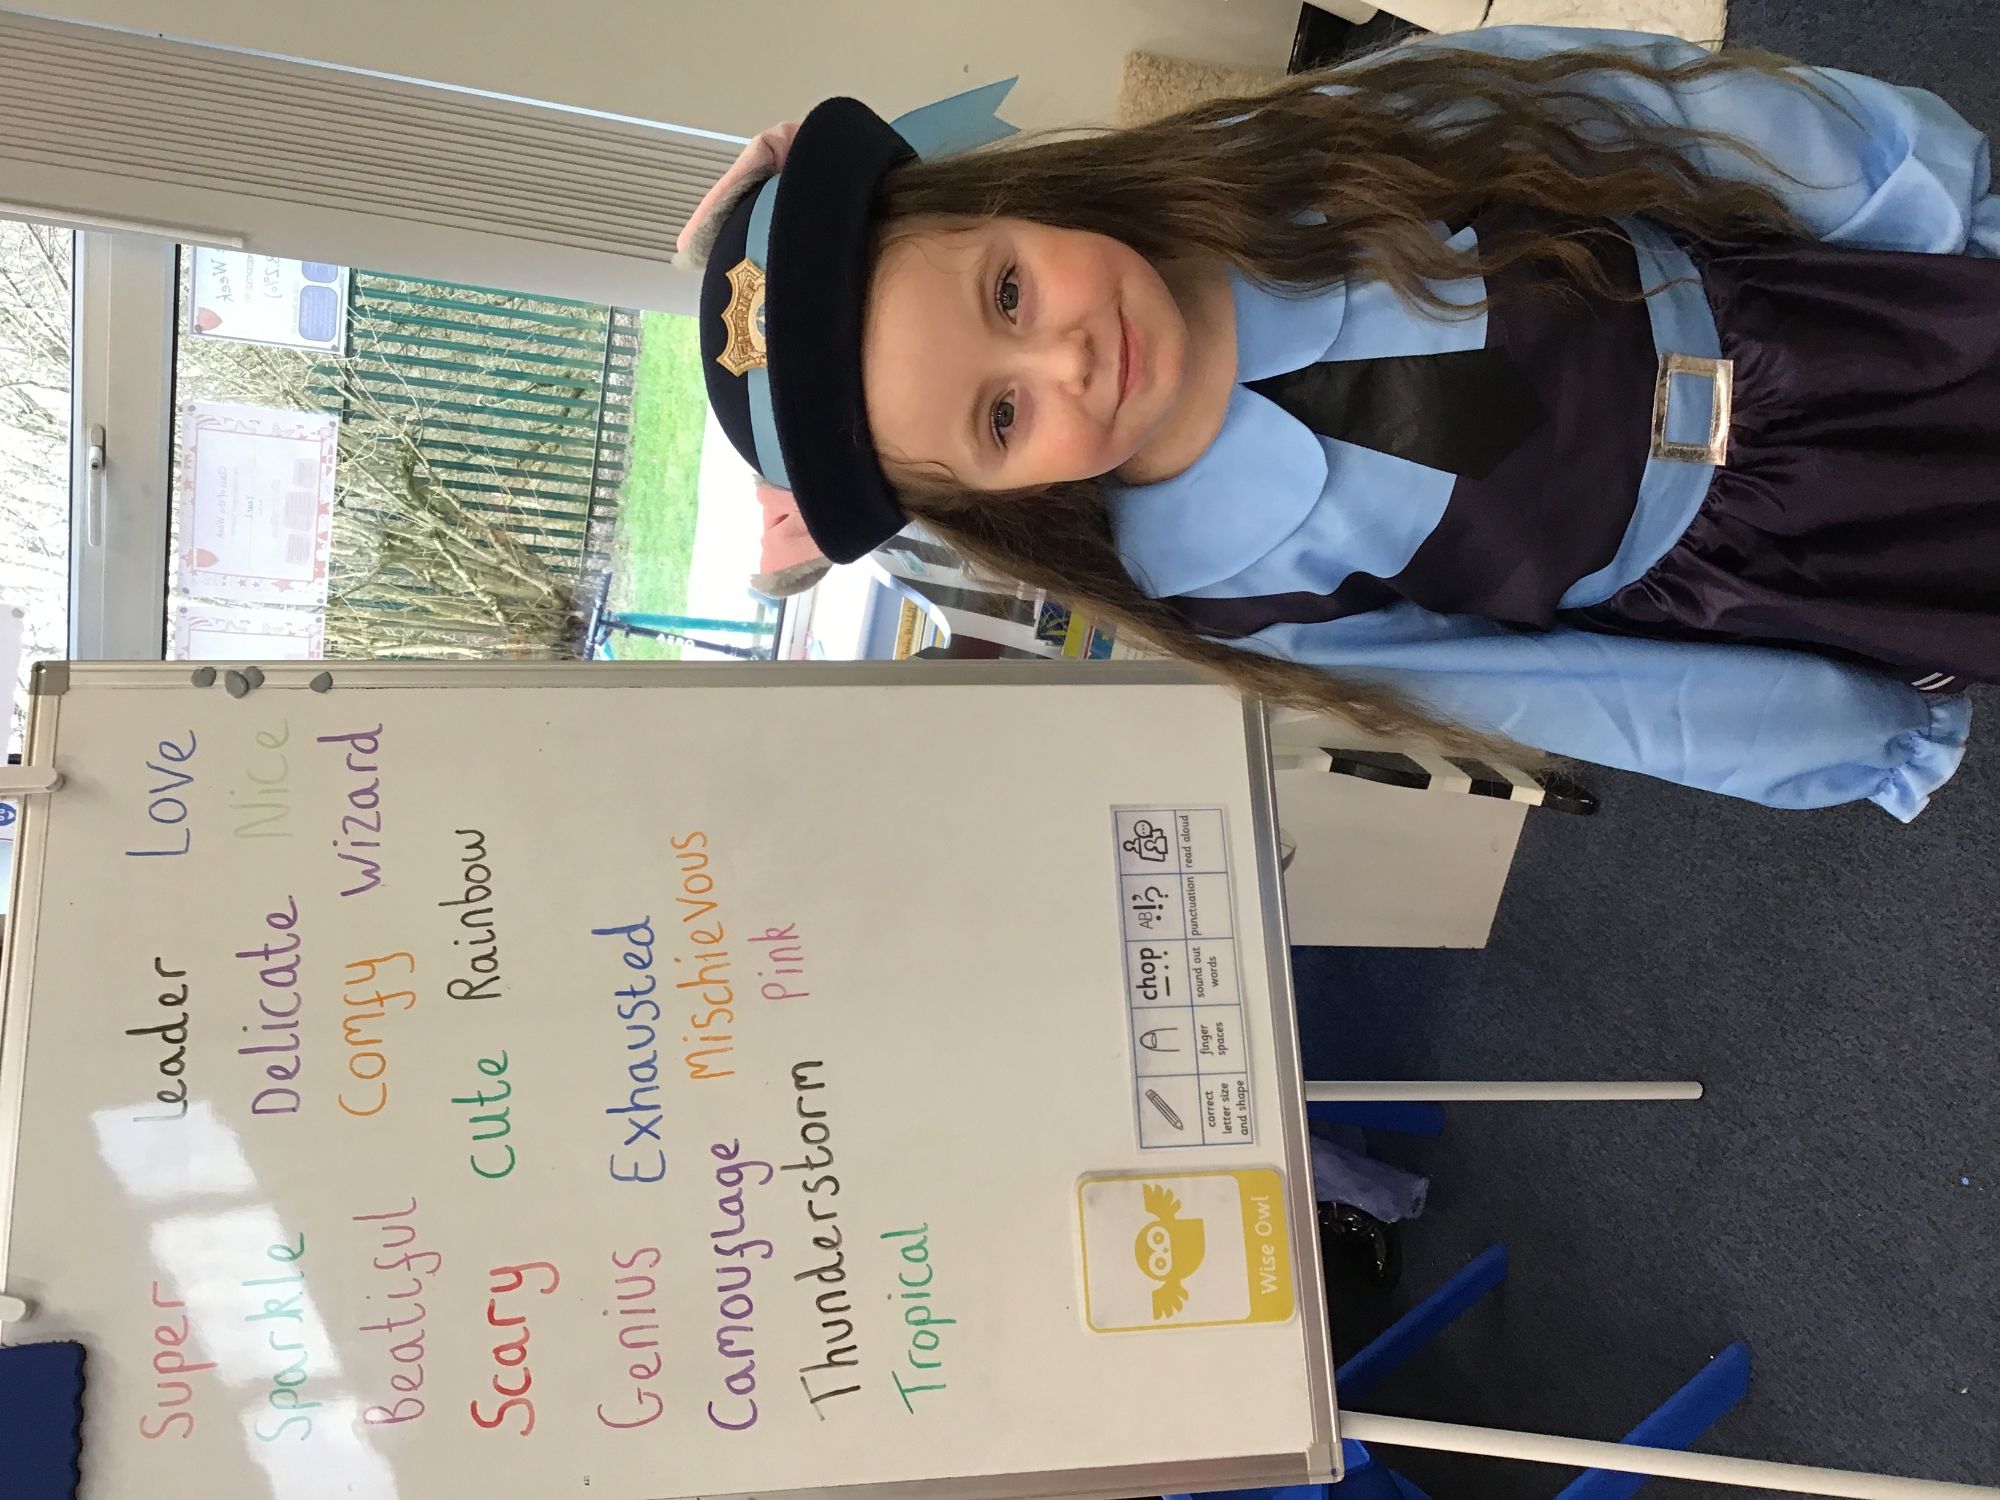 Super Leader Love
Sparkle Delicate Nice
Beatiful Comfy Wizard
Scary Cute Rainbow
Genius Exhausted
Camouflage Mischievous
Thunderstorm Pink
Tropical
Wise Owl
chop AB!?
correct letter size and shape
finger spaces
sound out words
punctuation
read aloud
Week
Class of the Week